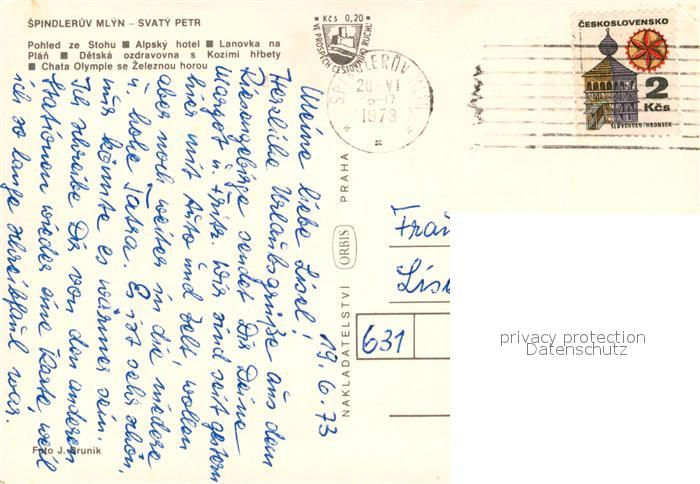 ŠPINDLERŮV MLÝN – SVATÝ PETR
Pohled ze Stohu ■ Alpský hotel ■ Lanovka na
Pláň ■ Dětská ozdravovna s Kozími hřbety
■ Chata Olympie se Železnou horou
Kčs 0,20
VE PROSPĚCH CESTOVNÍHO RUCHU
20-VI
1973
ČESKOSLOVENSKO
2
Kčs
SLOVENSKO-HRONSEK
19.6.73
Meine liebe Lisel!
Herzliche Urlaubsgrüße aus dem
Riesengebirge sendet Dir Deine
Margot u. Fritz. Wir sind seit gestern
hier mit Auto und Zelt, wollen
aber noch weiter in die niedere
u. hohe Tatra. Es ist sehr schön,
nur könnte es wärmer sein.
Ich schreibe Dir von den anderen
Stationen wieder eine Karte, weil
ich so lange schreibfaul war.
NAKLADATELSTVÍ ORBIS PRAHA
Frau
631
privacy protection
Datenschutz
Foto J. Bruník